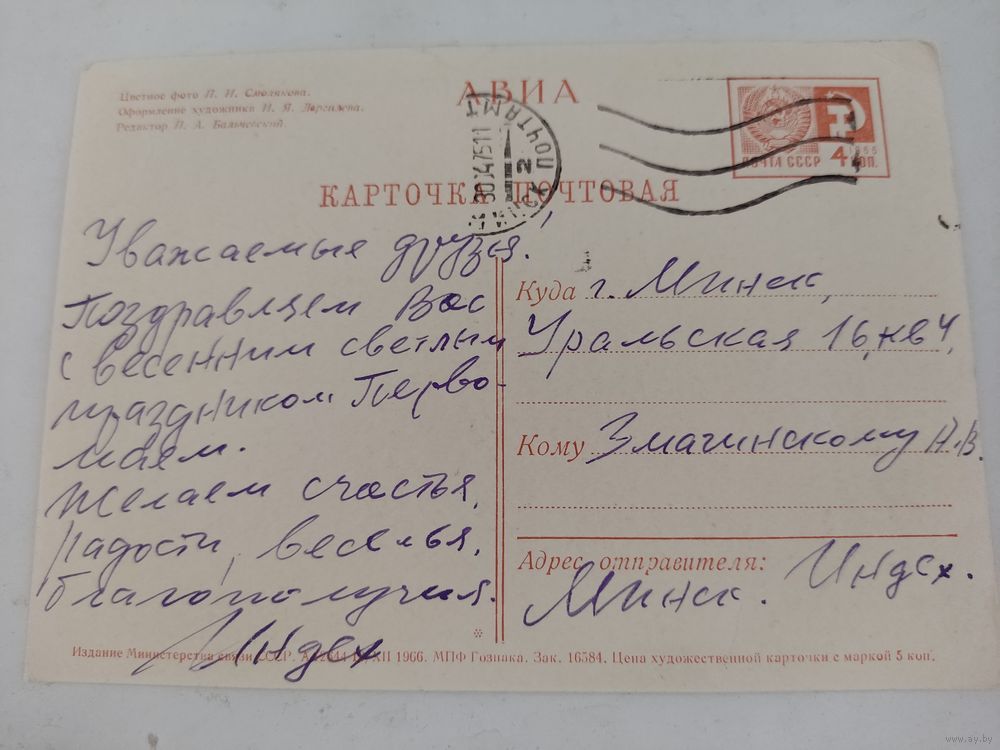 Цветное фото Л. И. Смолякова.
Оформление художника И. Я.
Редактор П. А. Вальчевский.
АВИА
ПОЧТАМТ
2
ПОЧТА СССР 4 КОП.
1966
КАРТОЧКА ПОЧТОВАЯ
Уважаемые друзья!
Поздравляем Вас
с весенним светлым
праздником Перво-
маем.
Желаем счастья,
радости, веселья,
благополучия.
Индех
Куда г. Минск,
Уральская 16, кв 4,
Кому Змачинскому А.В.
Адрес отправителя:
Минск. Индех.
*
Издание Министерства связи СССР. XII 1966. МПФ Гознака. Зак. 16584. Цена художественной карточки с маркой 5 коп.
www.ay.by